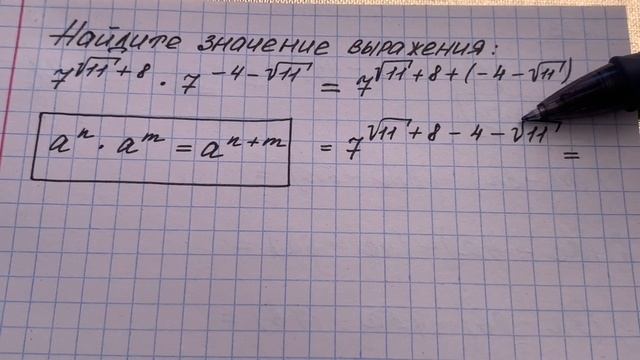 Найдите значение выражения:
7^{√11+8} · 7^{-4-√11} = 7^{√11+8+(-4-√11)}
a^n · a^m = a^{n+m}
= 7^{√11+8-4-√11} =